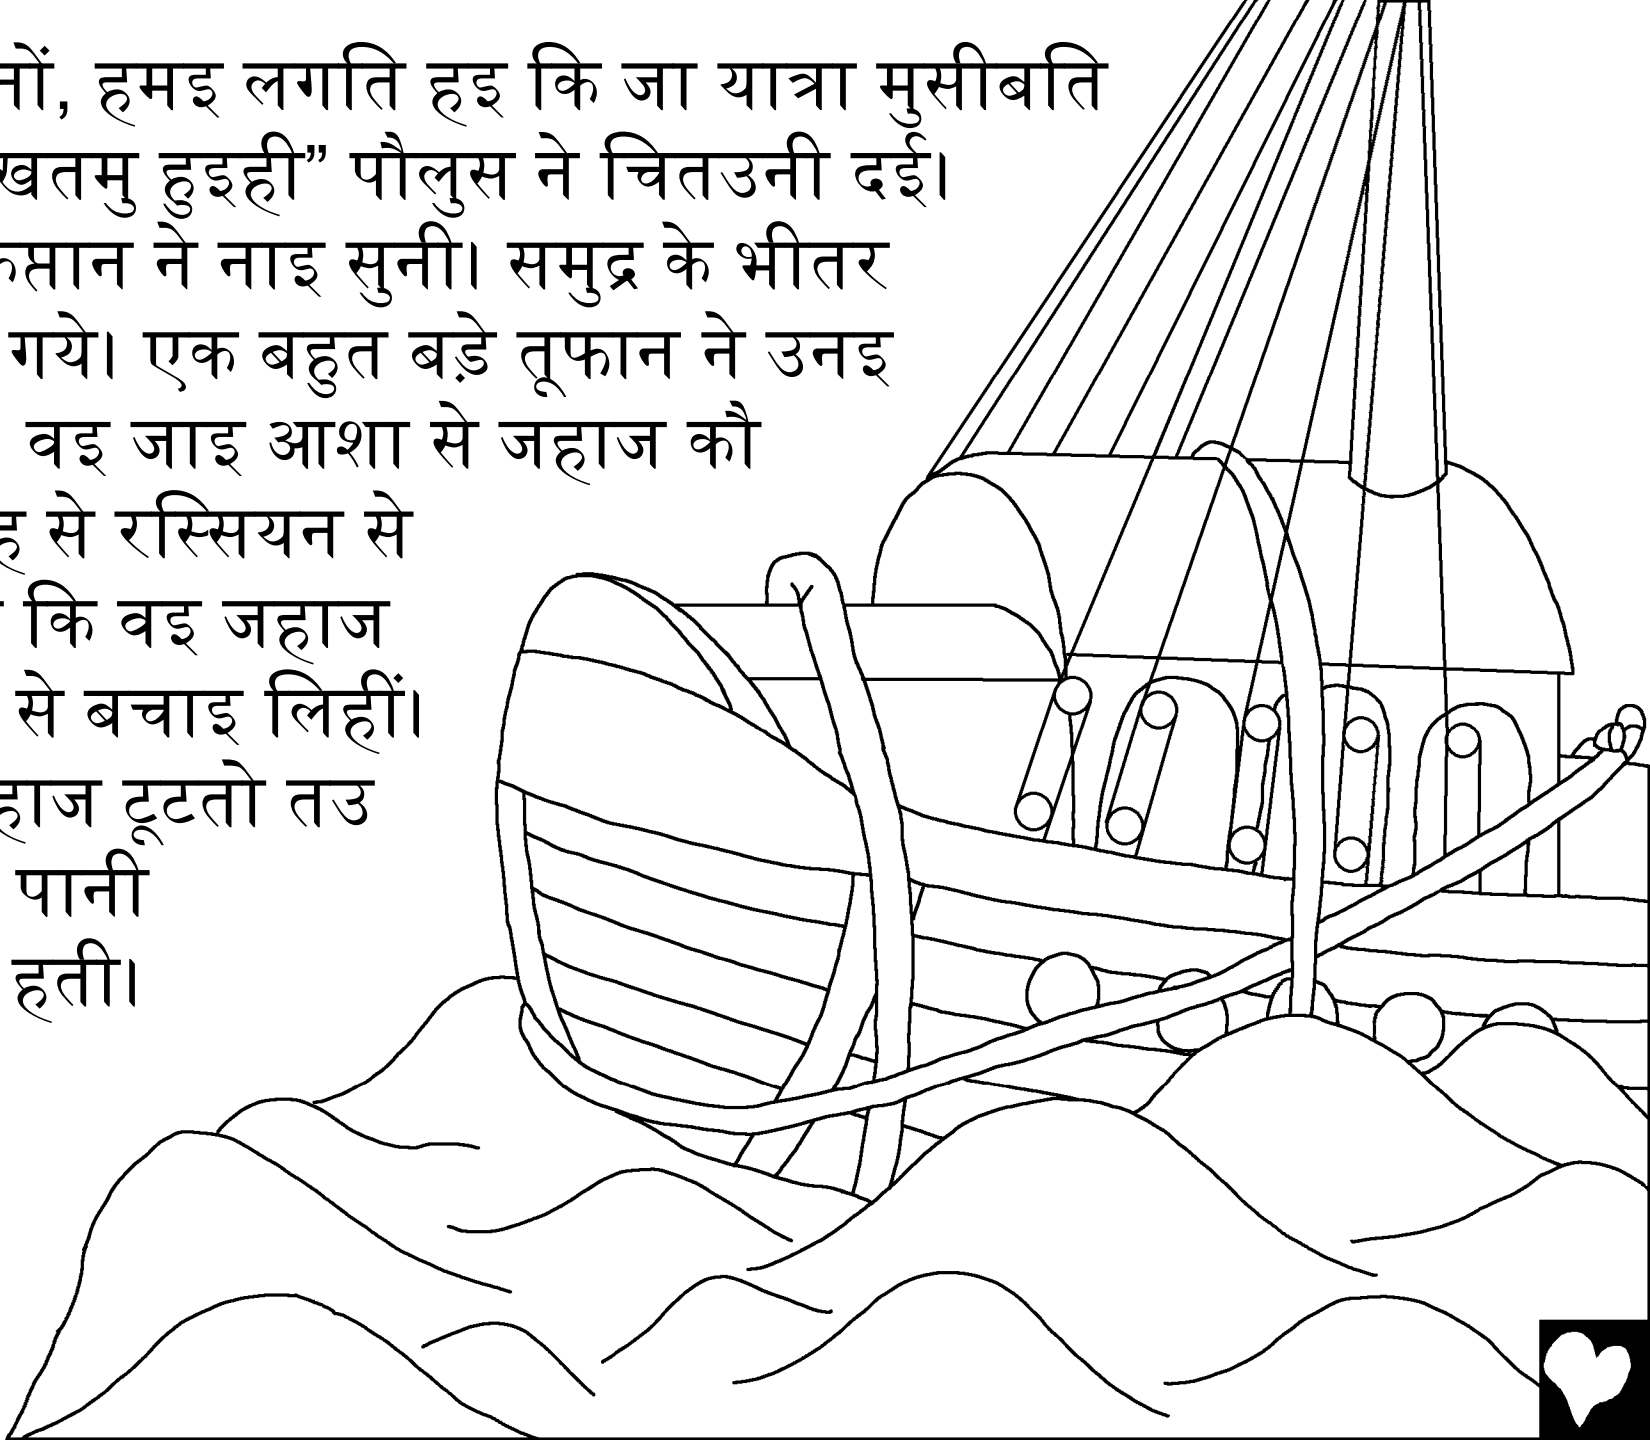 हमइ लगति हइ कि जा यात्रा मुसीबति
खतमु हुइही” पौलुस ने चितउनी दई।
ने नाइ सुनी। समुद्र के भीतर
गये। एक बहुत बड़े तूफान ने उनइ
वइ जाइ आशा से जहाज कौ
से रस्सियन से
कि वइ जहाज
से बचाइ लिहीं।
टूटतो तउ
पानी
हती।